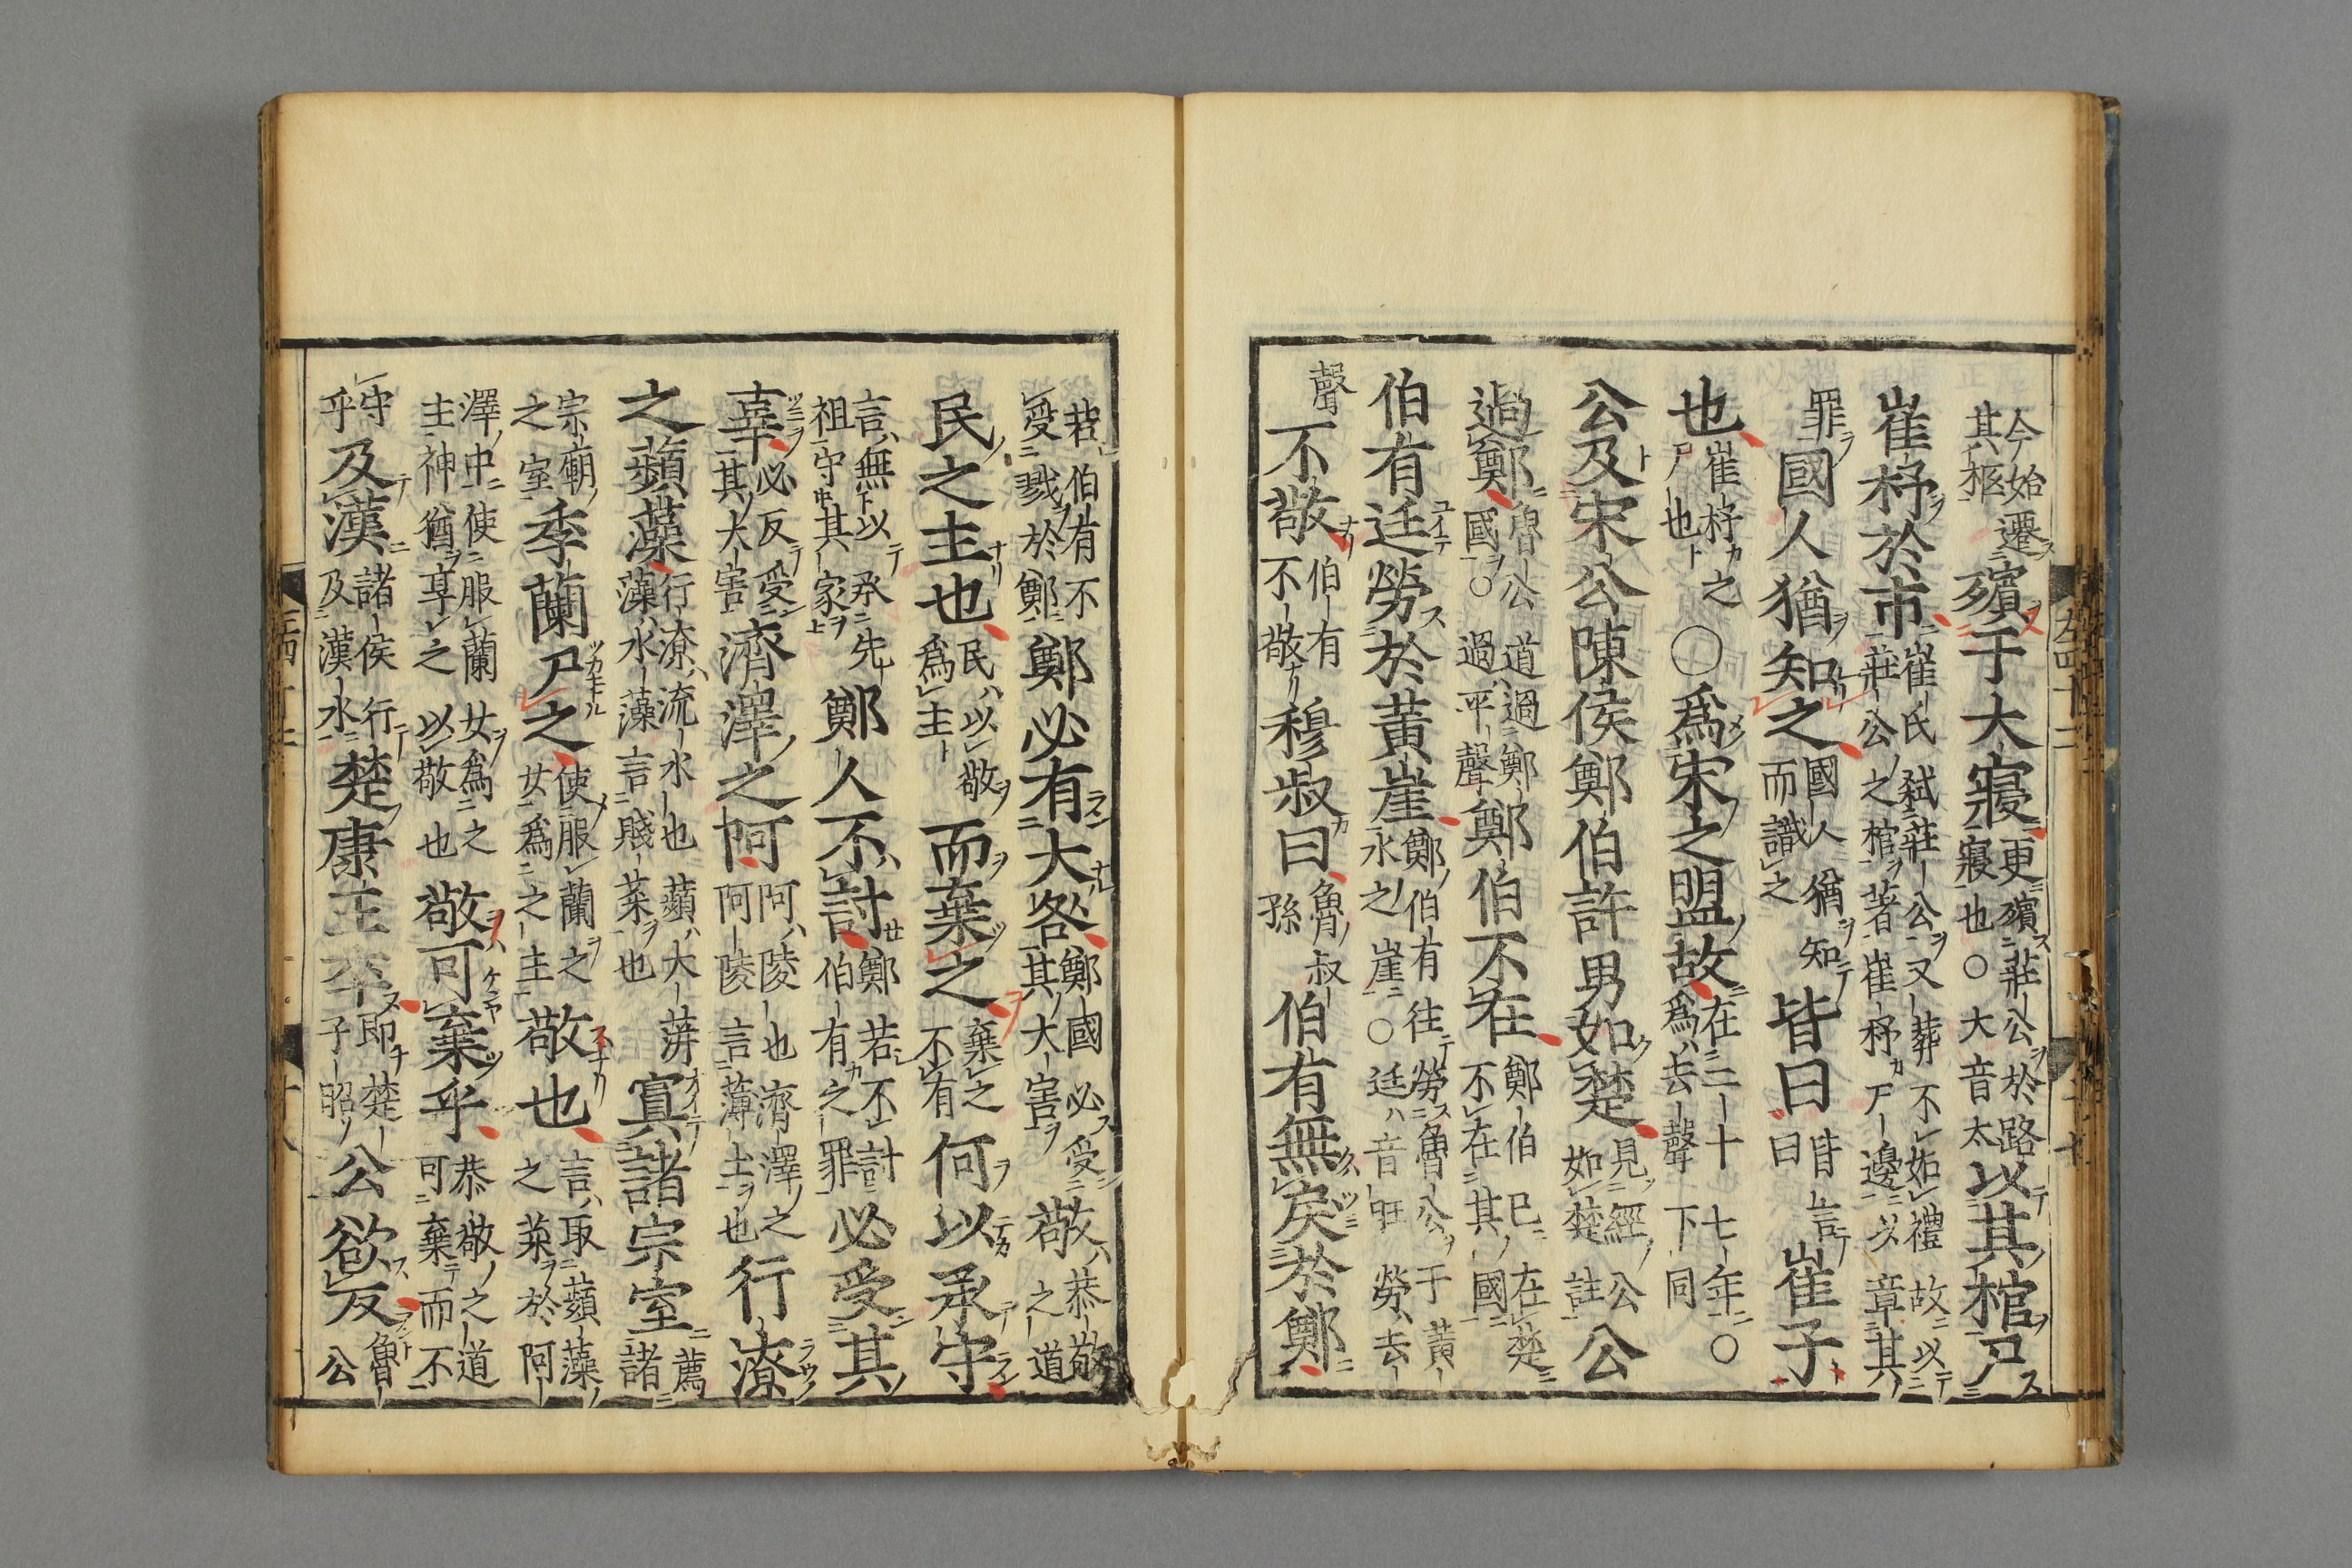 今始遷其柩殯于大寢更殯莊公於路寢也○大音太以其棺尸
崔杼於市崔氏弑莊公又葬不如禮故以莊公之棺著崔杼尸邊以章其
罪國人猶知之國人猶知而識之皆曰皆言曰崔子
也崔杼之尸也○爲宋之盟故在二十七年○爲去聲下同
公及宋公陳侯鄭伯許男如楚見經公如楚註公
過鄭魯公道過鄭國○過平聲鄭伯不在鄭伯已在楚不在其國
伯有廷勞於黄崖鄭伯有往勞魯公于黄水之崖○廷音旺勞去
聲不敬伯有不敬穆叔曰魯叔孫伯有無戾於鄭
若伯有不受戮於鄭鄭必有大咎鄭國必受其大害敬恭敬之道
民之主也民以敬爲主而棄之棄之不有何以承守
言無以承先祖守其家鄭人不討鄭若不討伯有之罪必受其
辜必反受其大害濟澤之阿阿陵也濟澤之阿陵言薄土也行潦
之蘋藻行潦流水也蘋大蓱藻水藻言賤菜也寘諸宗室薦諸
宗廟之室季蘭尸之使服蘭之女爲之主敬也言取蘋藻之菜於阿
澤中使服蘭女爲之主神猶享之以敬也敬可棄乎恭敬之道可棄而不
守乎及漢諸侯行及漢水楚康王卒即楚子昭公欲反魯公